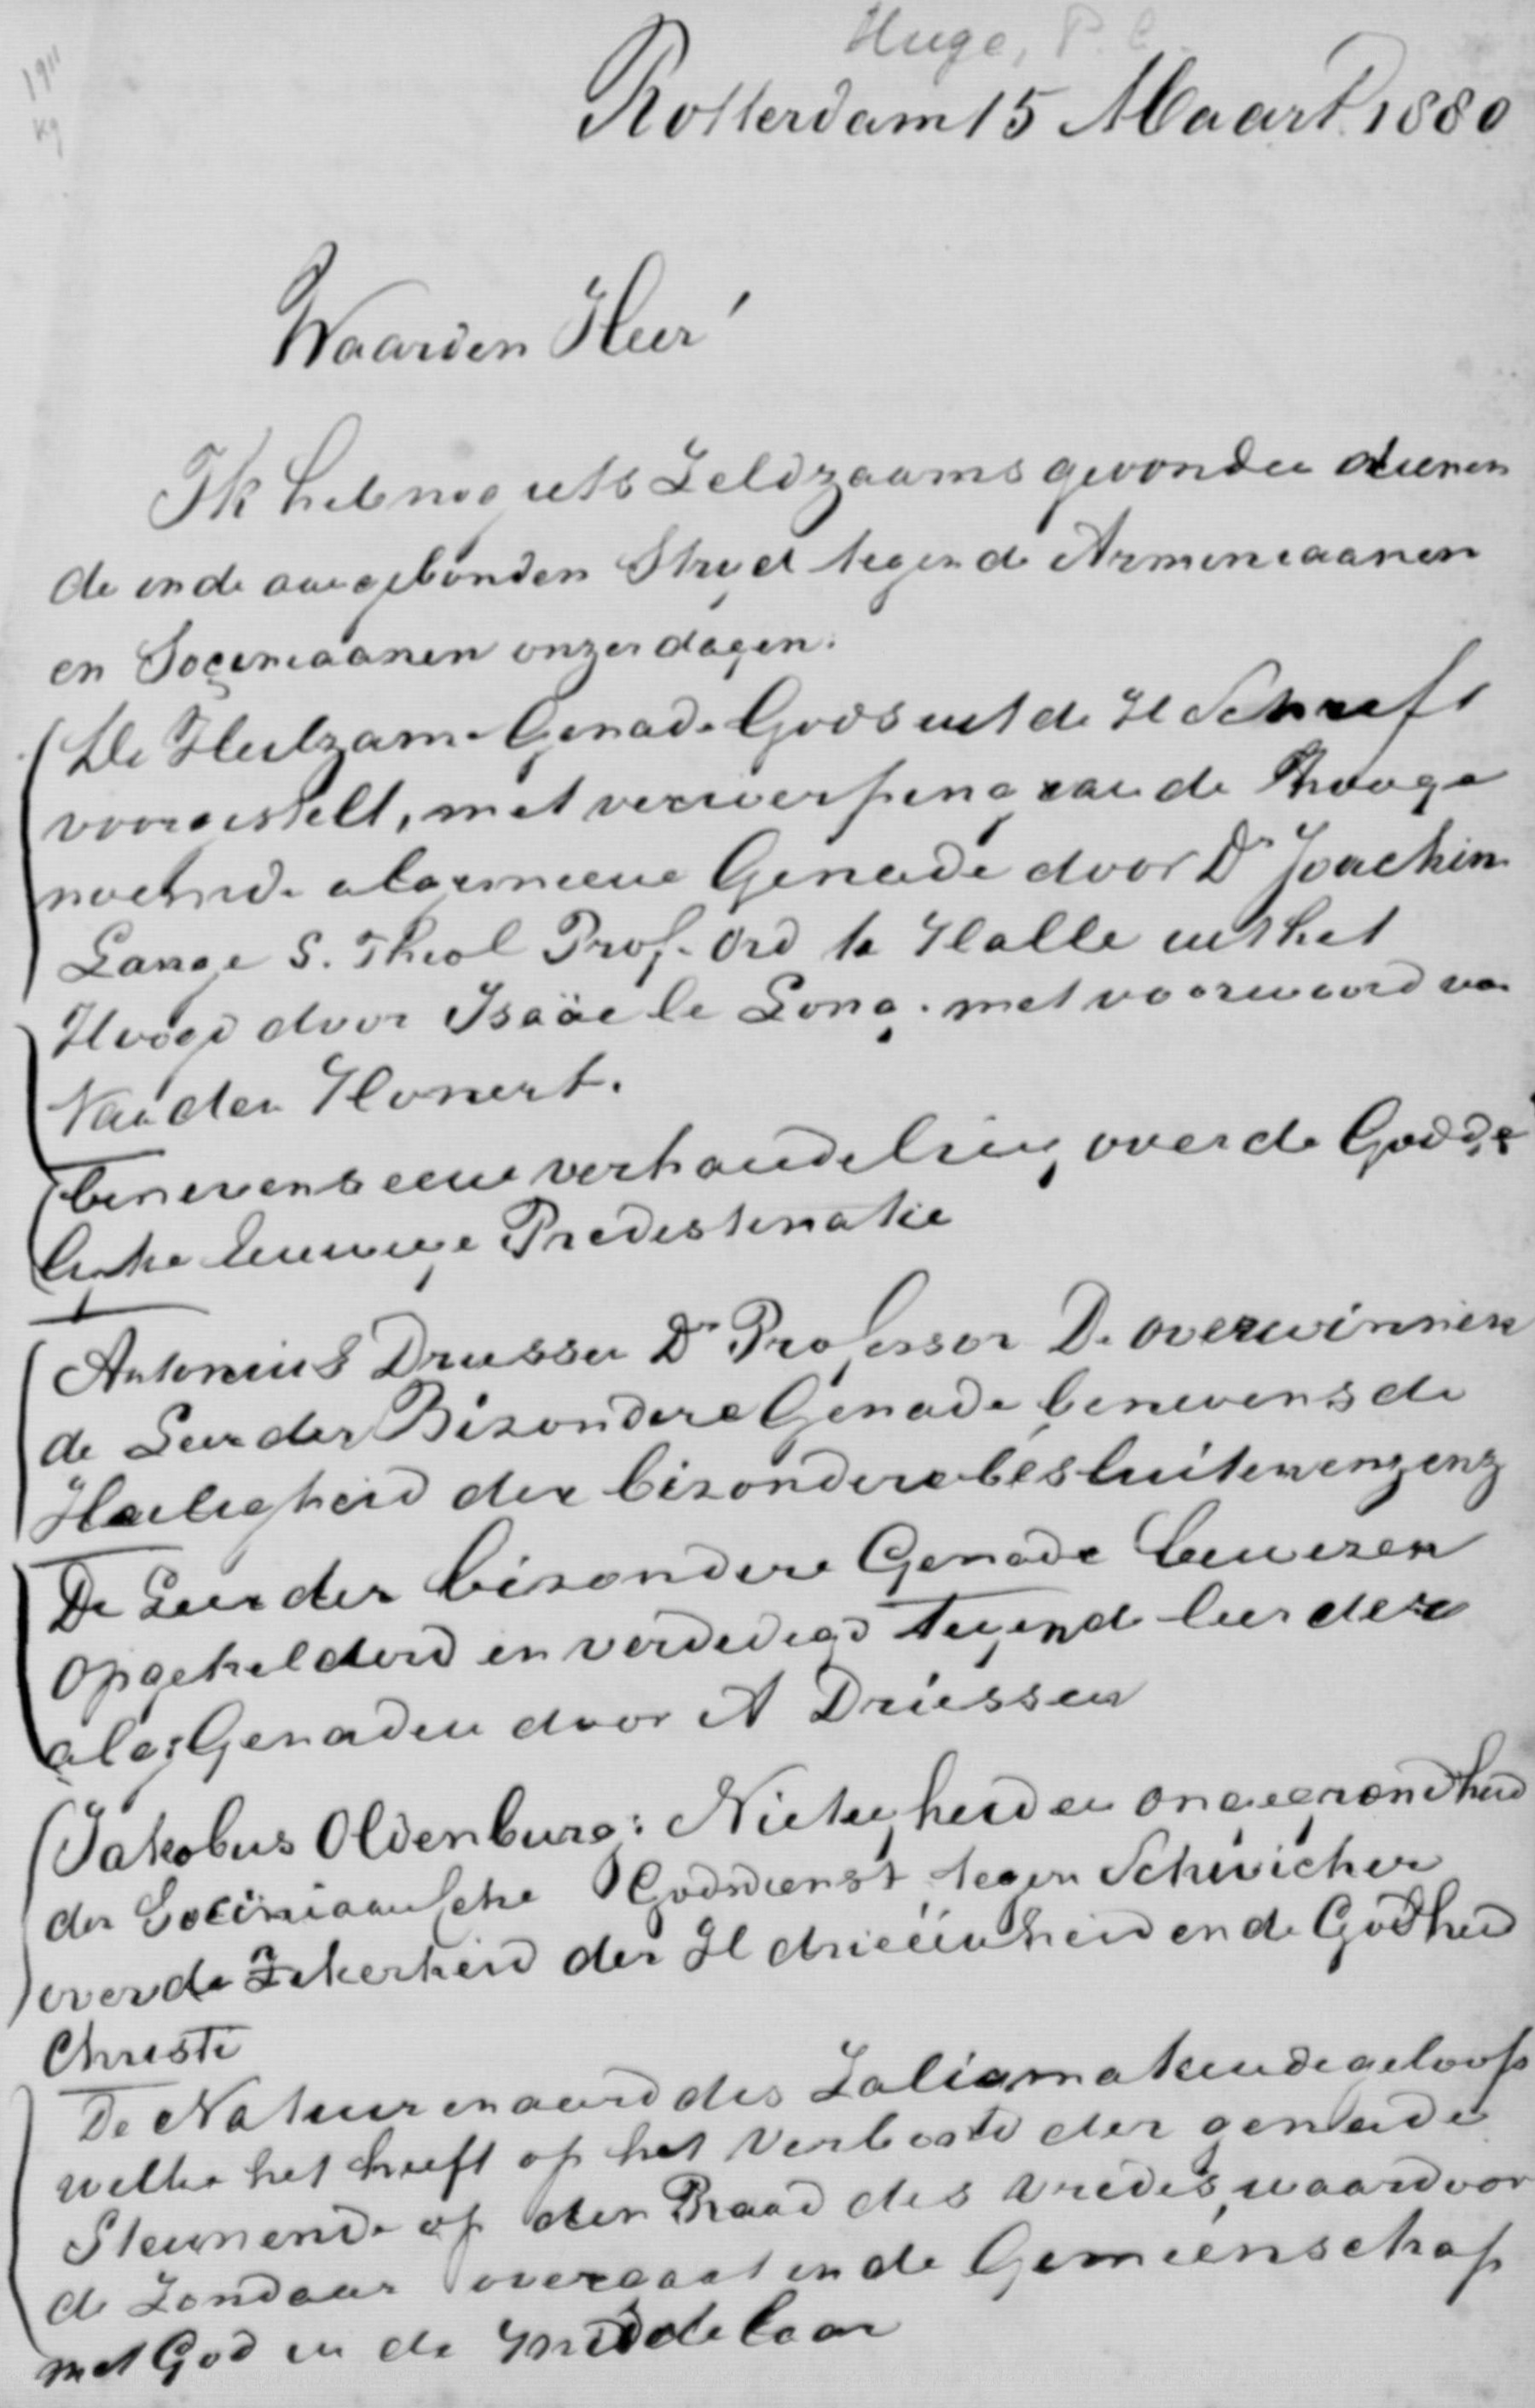 Huge, P. C.
1911
kg
Rotterdam 15 Maart 1880
Waarden Heer'
Ik heb nog iets Zeldzaams gevonden dienen
de in de aangebonden Stryd tegen de Armineaanen
en Socineaanen onzer dagen.
De Heilzame Genade Gods uit de H Schrift
voorgestelt, met verwerping van de Zooge
noemde algemeene Genade door Dr Joachim
Lange S. Theol Prof. Ord te Halle uit het
Hoogd door Isaäc le Long. met voorwoord van
Van den Honert.
benevens eene verhandeling over de Godde
lyke Eeuwige Predestinatie
Antonius Driessen Dr Professor De overwinnen
de Leer der Bizondere Genade benevens de
Heiligheid der bizondere besluiten enz enz
De Leer der bizondere Genade bewezen
Opgehelderd en verdedigd Tegen de leer der
alg: Genaden door A Driessen
Jakobus Oldenburg: Nietigheid en ongegrondheid
der Sociniaansche Godsdienst tegen Schwicher
over de Zekerheid der H drieëenheid en de Godheid
Christi
De Natuur en aard des Zaligmakende geloofs
welke het heeft op het Verbond der genade
Steunende op den Raad des Vredes waardoor
de Zondaar overgaat in de Gemeenschap
met God in de Middelaar